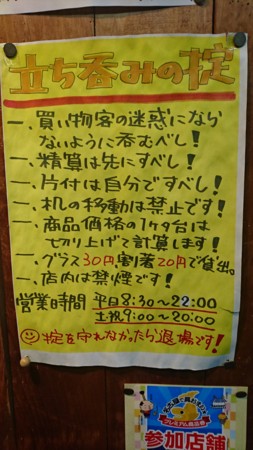 立ち呑みの掟
一、買い物客の迷惑になら
ないように呑むべし!
一、精算は先にすべし!
一、片付は自分ですべし!
一、机の移動は禁止です!
一、商品価格の1ケタ台は
切り上げて計算します!
一、グラス30円、割箸20円で貸出。
一、店内は禁煙です!
営業時間 平日8:30~22:00
土祝9:00~20:00
掟を守れなかったら退場です!
プレミアム商品券
参加店舗